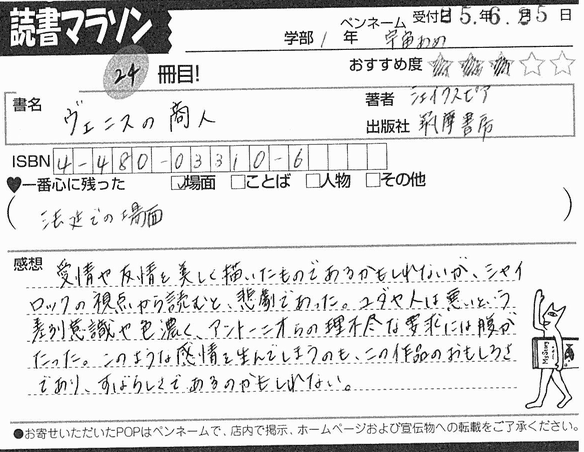 読書マラソン
受付日 5.年6.月25日
学部 1 年
ペンネーム 宇宙わめ
24 冊目!
おすすめ度 ★★★☆☆
書名 ヴェニスの商人
著者 シェイクスピア
出版社 筑摩書房
ISBN 4-480-03310-6
♥一番心に残った ☑場面 □ことば □人物 □その他
(法廷での場面)
感想 愛情や友情を美しく描いたものであるかもしれないが、シャイ
ロックの視点から読むと、悲劇であった。ユダヤ人は悪いという
差別意識や色濃く、アントーニオらの理不尽な要求には腹が
たった。このような感情を生んでしまうのも、この作品のおもしろさ
であり、すばらしさであるのかもしれない。
●お寄せいただいたPOPはペンネームで、店内で掲示、ホームページおよび宣伝物への転載をご了承ください。